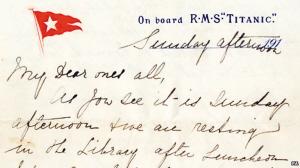 On board R·M·S "TITANIC."
Sunday afternoon 191
My Dear ones all,
As you see it is Sunday
afternoon & we are resting
in the Library after Luncheon